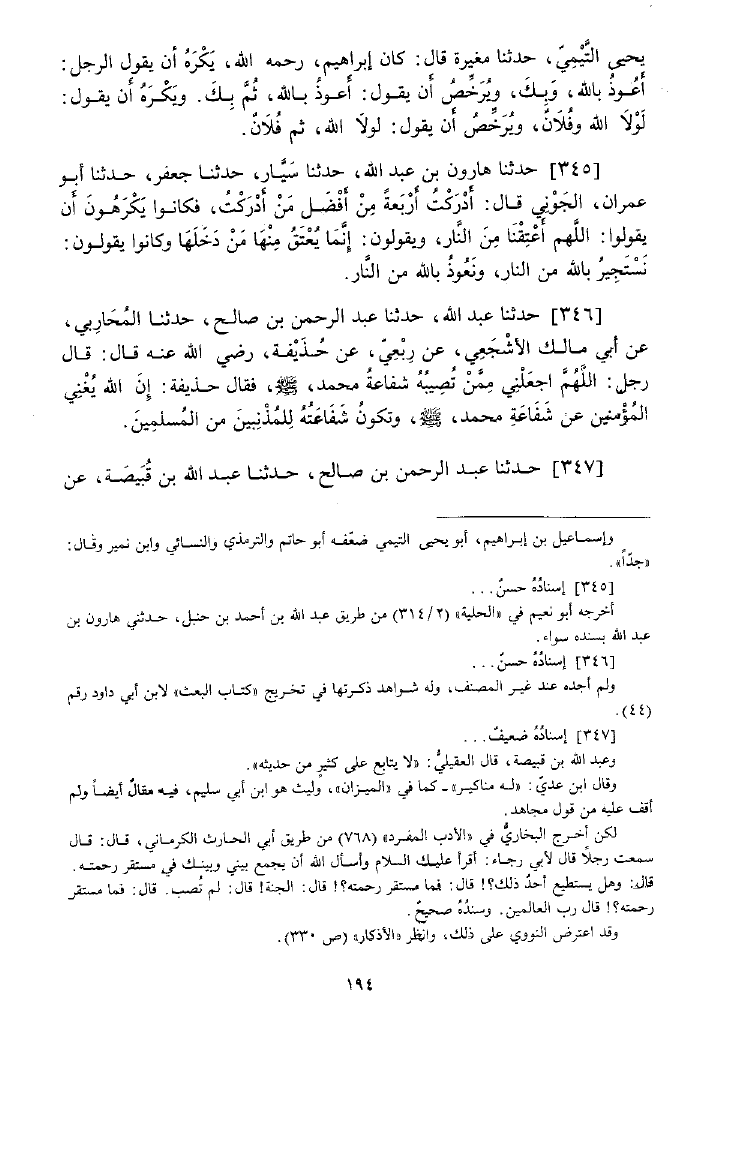 يحيى التَّيْمِيّ، حدثنا مغيرة قال: كان إبراهيم، رحمه الله، يَكْرَهُ أن يقول الرجل:
أَعُوذُ بالله، وَبِكَ، ويُرَخِّصُ أن يقول: أَعوذُ بـالله، ثُمَّ بِـكَ. ويَكْـرَهُ أن يقـول:
لَوْلَا الله وفُلَانٌ، ويُرَخِّصُ أن يقول: لولَا الله، ثم فُلَانٌ.
[٣٤٥] حدثنا هارون بن عبد الله، حدثنا سَيَّار، حدثنا جعفر، حـدثنـا أبـو
عمران، الجَوْنِي قال: أَدْرَكْتُ أَرْبَعةً مِنْ أَفْضَـلِ مَنْ أَدْرَكْتُ، فكانـوا يَكْرَهُـونَ أن
يقولوا: اللَّهم أَعْتِقْنَا مِنَ النَّار، ويقولون: إِنَّمَا يُعْتَقُ مِنْهَا مَنْ دَخَلَهَا وكانوا يقولـون:
نَسْتَجِيرُ بالله من النار، ونَعُوذُ بالله من النَّار.
[٣٤٦] حدثنا عبد الله، حدثنا عبد الرحمن بن صالـح، حدثنـا المُحَاربي،
عن أبي مالـك الأشْجَعِي، عن رِبْعِيّ، عن حُـذَيْفـة، رضي الله عنـه قـال: قـال
رجل: اللَّهُمَّ اجعَلْنِي مِمَّنْ تُصِيبُهُ شفاعةُ محمد، ﷺ، فقال حـذيفة: إِنَ الله يُغْنِي
المُؤْمنين عن شَفَاعَةِ محمـد، ﷺ، وتكونُ شَفَاعَتُهُ لِلمُذْنِبينَ من المُسلمِينَ.
[٣٤٧] حدثنـا عبـد الرحمن بن صـالح، حـدثنـا عبـد الله بن قُبَيصَـة، عن
وإسماعيل بن إبراهيم، أبو يحيى التيمي ضعّفه أبو حاتم والترمذي والنسائي وابن نمير وقال:
«جدّاً».
[٣٤٥] إسنادُهُ حسنٌ...
أخرجه أبو نعيم في «الحلية» (٢/ ٣١٤) من طريق عبد الله بن أحمد بن حنبل، حدثني هارون بن
عبد الله بسنده سواء.
[٣٤٦] إسنادُهُ حسنٌ...
ولم أجده عند غير المصنف، وله شواهد ذكرتها في تخريج «كتاب البعث» لابن أبي داود رقم
(٤٤).
[٣٤٧] إسنادُهُ ضعيفٌ...
وعبد الله بن قبيصة، قال العقيليُّ: «لا يتابع على كثيرٍ من حديثه».
وقال ابن عديّ: «لـه مناكيـر» ـ كما في «الميـزان»، وليث هو ابن أبي سليم، فيـه مقالٌ أيضـاً ولم
أقف عليه من قول مجاهد.
لكن أخرج البخاريُّ في «الأدب المفرد» (٧٦٨) من طريق أبي الحارث الكرماني، قال: قـال
سمعت رجلًا قال لأبي رجاء: أقرأ عليـك السلام وأسأل الله أن يجمع بيني وبينـك في مستقر رحمتـه.
قال: وهل يستطيع أحدٌ ذلك؟! قال: فما مستقر رحمته؟! قال: الجنة! قال: لم تُصب. قال: فما مستقر
رحمته؟! قال رب العالمين. وسندُهُ صحيحٌ.
وقد اعترض النووي على ذلك، وانظر «الأذكار» (ص ٣٣٠).
١٩٤